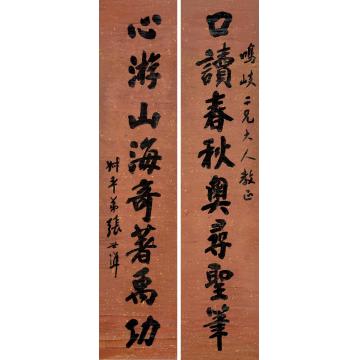 口讀春秋奧尋聖筆
鳴岐二兄大人教正
心游山海奇著禹功
弟張